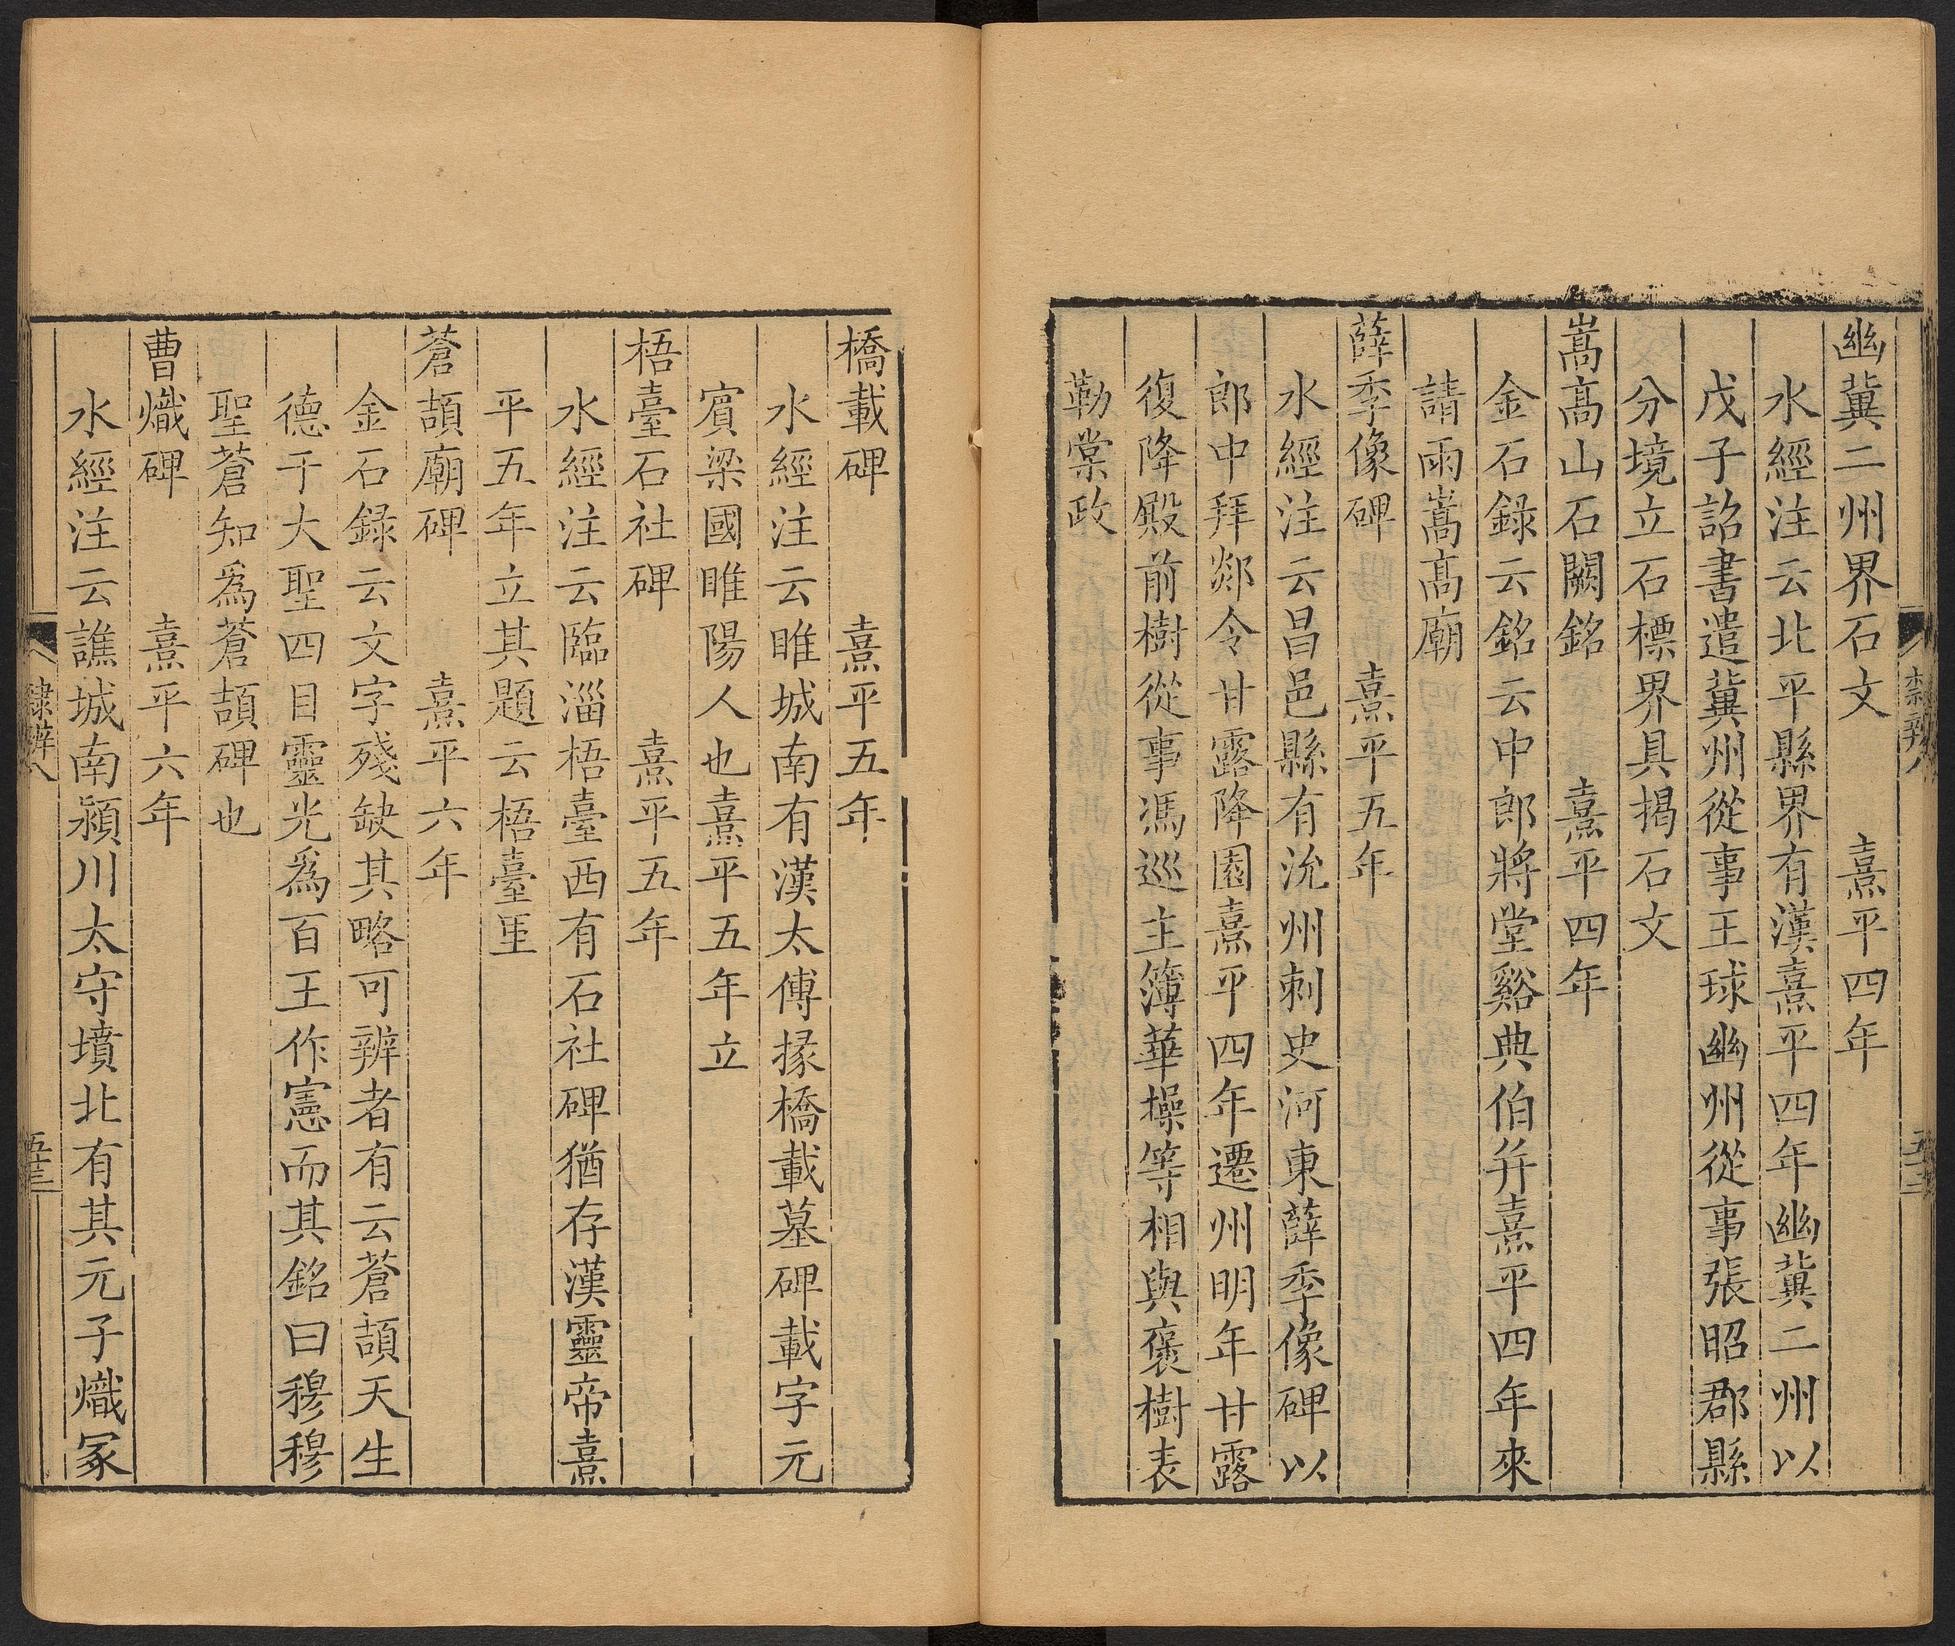 幽冀二州界石文 熹平四年
水經注云北平縣界有漢熹平四年幽冀二州以
戊子詔書遣冀州從事王球幽州從事張昭郡縣
分境立石標界具揭石文
嵩高山石闕銘 熹平四年
金石録云銘云中郎將堂谿典伯幷熹平四年來
請雨嵩高廟
薛季像碑 熹平五年
水經注云昌邑縣有沇州刺史河東薛季像碑以
郎中拜郯令甘露降園熹平四年遷州明年甘露
復降殿前樹從事馮巡主簿華操等相與襃樹表
勒棠政
橋載碑 熹平五年
水經注云睢城南有漢太傅掾橋載墓碑載字元
賓梁國睢陽人也熹平五年立
梧臺石社碑 熹平五年
水經注云臨淄梧臺西有石社碑猶存漢靈帝熹
平五年立其題云梧臺里
蒼頡廟碑 熹平六年
金石録云文字殘缺其略可辨者有云蒼頡天生
德于大聖四目靈光爲百王作憲而其銘曰穆穆
聖蒼知爲蒼頡碑也
曹熾碑 熹平六年
水經注云譙城南潁川太守墳北有其元子熾冢
隸辨八